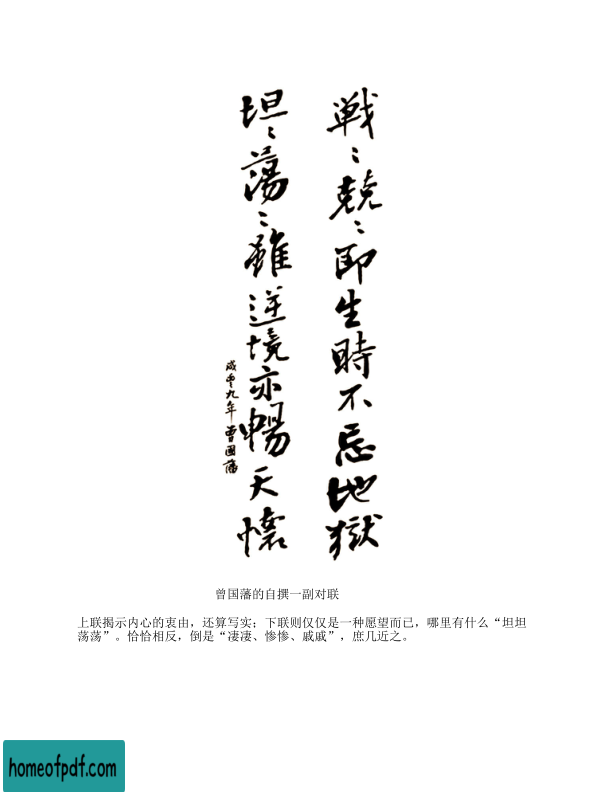 戰〻兢〻即生時不忘地獄
坦〻蕩〻雖逆境亦暢天懷
咸豐九年 曾國藩
曾国藩的自撰一副对联
上联揭示内心的衷由，还算写实；下联则仅仅是一种愿望而已，哪里有什么“坦坦
荡荡”。恰恰相反，倒是“凄凄、惨惨、戚戚”，庶几近之。
homeofpdf.com